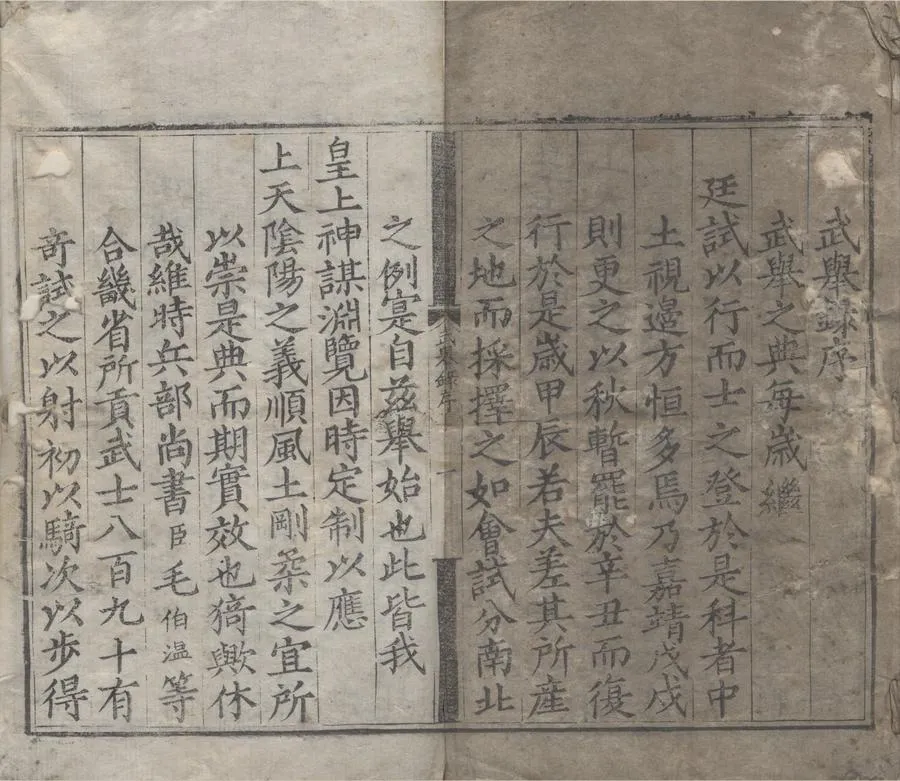 武舉録序
武舉之典每歲繼
廷試以行而士之登於是科者中
土視邉方恒多焉乃嘉靖戊戍
則更之以秋暫罷於辛丑而復
行於是歲甲辰若夫差其所産
之地而採擇之如會試分南北
武舉録序 一
之例寔自兹舉始也此皆我
皇上神謀淵覽因時定制以應
上天隂陽之義順風土剛柔之宜所
以崇是典而期實效也猗歟休
哉維時兵部尚書臣毛伯温等
合畿省所貢武士八百九十有
奇試之以射初以騎次以步得